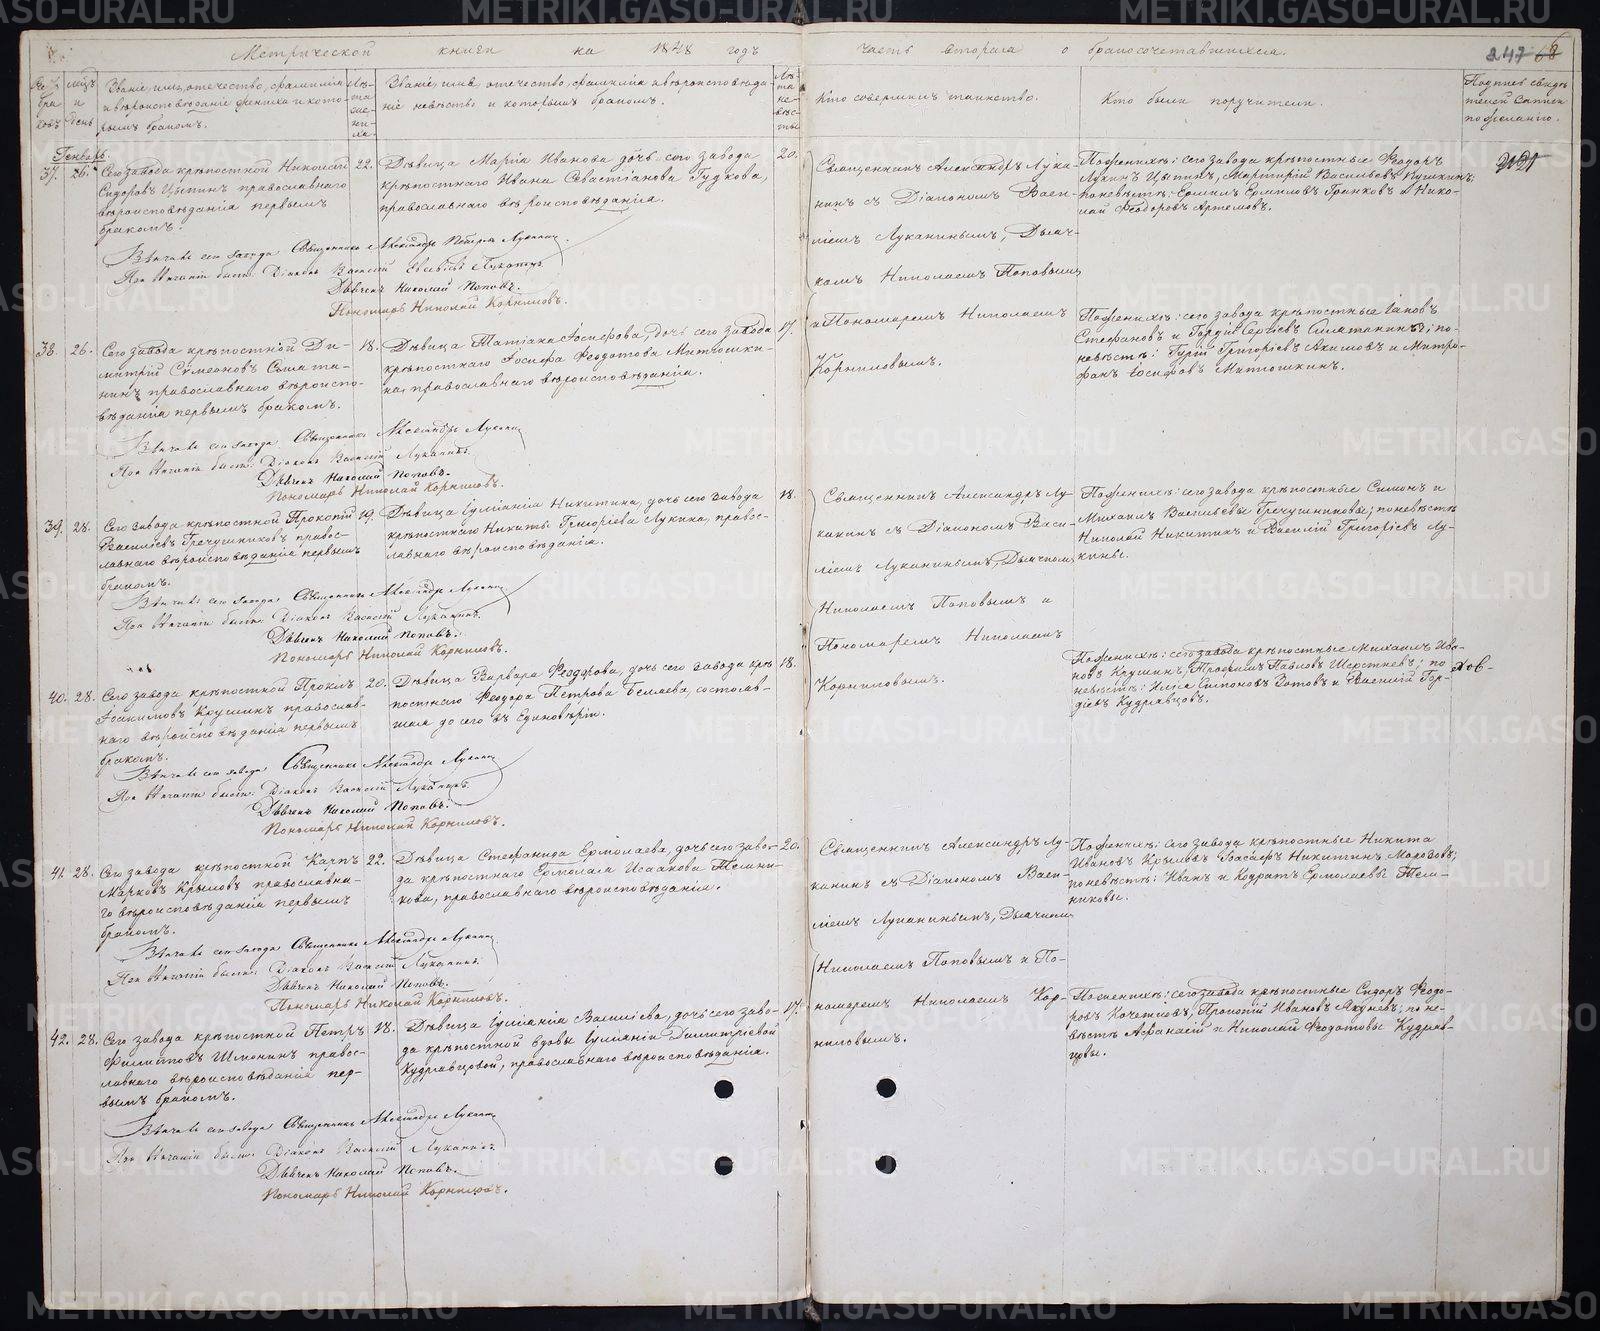 Метрической книги на 1848 годъ
часть вторая о бракосочетавшихся.
Званіе, имя, отечество, фамилія
и вѣроисповѣданіе жениха и кото-
рымъ бракомъ.
Лѣ-
та
же-
ни-
ха.
Званіе, имя, отечество, фамилія и вѣроисповѣда-
ніе невѣсты и которымъ бракомъ.
Лѣ-
та
не-
вѣс-
ты
Кто совершилъ таинство.
Кто были поручители.
Подпись свидѣ-
телей записи
по желанію.
Генварь.
37. 26. Сего завода крѣпостной Николай
Сидоровъ Цыпинъ православнаго
вѣроисповѣданія первымъ
бракомъ.
22.
Дѣвица Марія Иванова дочь сего завода
крѣпостнаго Ивана Севастіанова Гудкова,
православнаго вѣроисповѣданія.
20.
Священникъ Александръ Лука-
нинъ съ Діакономъ Васи-
ліемъ Луканинымъ, Дьяч-
комъ Николаемъ Поповымъ
и Пономаремъ Николаемъ
Корниловымъ.
По женихѣ: сего завода крѣпостные Феодоръ
Лукинъ Цыпинъ, Мартирій Васильевъ Пушкинъ;
по невѣстѣ: Ермилъ Ермиловъ Громковъ и Нико-
лай Феодоровъ Артемовъ.
Вѣнчалъ сего завода Священникъ Александръ Петровъ Луканинъ
При вѣнчаніи были: Діаконъ Василій Евсевіевъ Луканинъ.
Дьячекъ Николай Поповъ.
Пономарь Николай Корниловъ.
38. 26. Сего завода крѣпостной Ди-
митрій Сѵмеоновъ Самата-
нинъ православнаго вѣроиспо-
вѣданія первымъ бракомъ.
18.
Дѣвица Татіана Іосифова, дочь сего завода
крѣпостнаго Іосифа Феодотова Митюшки-
на, православнаго вѣроисповѣданія.
17.
По женихѣ: сего завода крѣпостные Іаковъ
Стефановъ и Гордій Сергѣевъ Саматанины; по-
невѣстѣ: Гурій Григоріевъ Акимовъ и Митро-
фанъ Іосифовъ Митюшкинъ.
Вѣнчалъ сего завода Священникъ Александръ Луканинъ
При вѣнчаніи были: Діаконъ Василій Луканинъ.
Дьячекъ Николай Поповъ.
Пономарь Николай Корниловъ.
39. 28. Сего завода крѣпостной Прокопій
Василіевъ Гречушниковъ право-
славнаго вѣроисповѣданія первымъ
бракомъ.
19.
Дѣвица Іуліанія Никитина, дочь сего завода
крѣпостнаго Никиты Григоріева Лукина, право-
славнаго вѣроисповѣданія.
18.
Священникъ Александръ Лу-
канинъ съ Діакономъ Васи-
ліемъ Луканинымъ, Дьячкомъ
Николаемъ Поповымъ и
Пономаремъ Николаемъ
Корниловымъ.
По женихѣ: сего завода крѣпостные Симонъ и
Михаилъ Васильевы Гречушниковы; по невѣстѣ
Николай Никитинъ и Василій Григоріевъ Лу-
кины.
Вѣнчалъ сего завода Священникъ Александръ Луканинъ
При вѣнчаніи были: Діаконъ Василій Луканинъ.
Дьячекъ Николай Поповъ.
Пономарь Николай Корниловъ.
40. 28. Сего завода крѣпостной Проклъ
Іоакимовъ Крушинъ православ-
наго вѣроисповѣданія первымъ
бракомъ.
20.
Дѣвица Варвара Феодорова, дочь сего завода крѣ-
постнаго Феодора Петрова Беляева, состояв-
шая до сего въ Единовѣріи.
18.
По женихѣ: сего завода крѣпостные Михаилъ Ива-
новъ Крушинъ, Трофимъ Павловъ Шерстневъ; по
невѣстѣ: Илія Симоновъ Зотовъ и Василій Гор-
діевъ Кудрявцовъ.
Вѣнчалъ сего завода Священникъ Александръ Луканинъ
При вѣнчаніи были: Діаконъ Василій Луканинъ.
Дьячекъ Николай Поповъ.
Пономарь Николай Корниловъ.
41. 28. Сего завода крѣпостной Карпъ
Марковъ Крыловъ православна-
го вѣроисповѣданія первымъ
бракомъ.
22.
Дѣвица Стефанида Ермолаева, дочь сего заво-
да крѣпостнаго Ермолая Исаакова Темни-
кова, православнаго вѣроисповѣданія.
20.
Священникъ Александръ Лу-
канинъ съ Діакономъ Васи-
ліемъ Луканинымъ, Дьячкомъ
Николаемъ Поповымъ и По-
номаремъ Николаемъ Кор-
ниловымъ.
По женихѣ: сего завода крѣпостные Никита
Ивановъ Крыловъ, Іоасафъ Никитинъ Молодовъ;
по невѣстѣ: Иванъ и Кодратъ Ермолаевы Тем-
никовы.
Вѣнчалъ сего завода Священникъ Александръ Луканинъ
При вѣнчаніи были: Діаконъ Василій Луканинъ.
Дьячекъ Николай Поповъ.
Пономарь Николай Корниловъ.
42. 28. Сего завода крѣпостной Петръ
Филиповъ Шмонинъ право-
славнаго вѣроисповѣданія пер-
вымъ бракомъ.
18.
Дѣвица Іуліанія Василіева, дочь сего заво-
да крѣпостной вдовы Іуліаніи Димитріевой
Кудрявцовой, православнаго вѣроисповѣданія.
17.
По женихѣ: сего завода крѣпостные Сидоръ Феодо-
ровъ Кочетовъ, Прокопій Ивановъ Якуневъ; по не-
вѣстѣ Афанасій и Николай Феодотовы Кудряв-
цовы.
Вѣнчалъ сего завода Священникъ Александръ Луканинъ
При вѣнчаніи были: Діаконъ Василій Луканинъ.
Дьячекъ Николай Поповъ.
Пономарь Николай Корниловъ.
METRIKI.GASO-URAL.RU